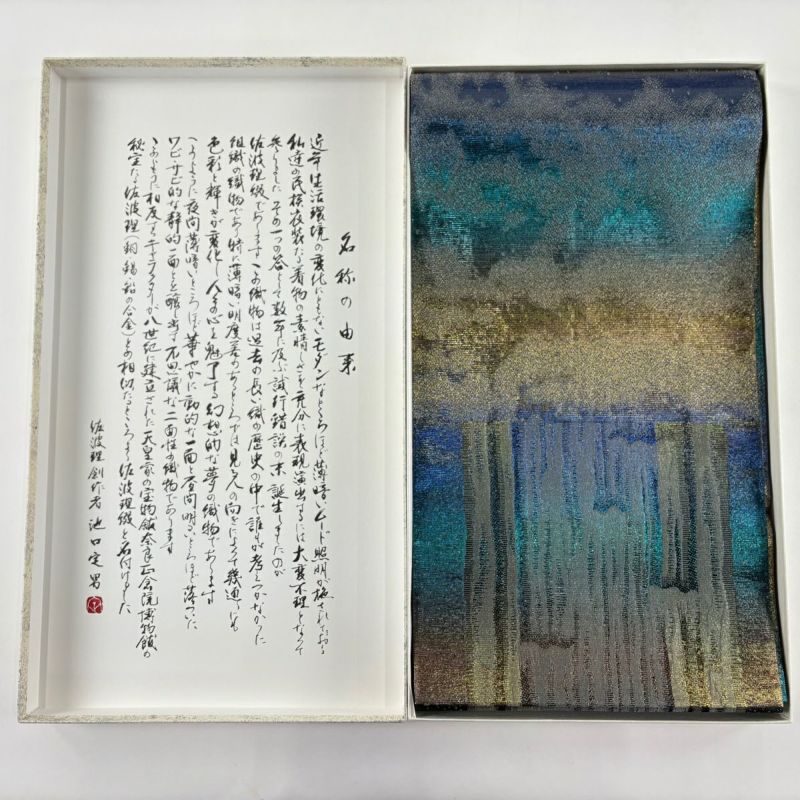 名称の由来
近年生活環境の変化にともないモダンなところほど薄暗いムード照明が施されており
私達の民族衣装たる着物の素晴しさを充分に表現演出するには大変不理となって
参りました その一つの答として数年に及ぶ試行錯誤の末誕生しましたのが
佐波理綴であります この織物は過去の長い織の歴史の中で誰もが考えつかなかった
組織の織物であり特に薄暗い明度差のあるところでは見る人の向きによって幾通りも
色彩と輝きが変化し人々の心を魅了する幻想的な夢の織物であります
このように夜間薄暗いところほど華やかに動的な一面と昼間明るいところほど落ついた
ワビ・サビ的な静的一面とを醸し出す不思議な二面性の織物であります
このように相反するキャラクターが八世紀に建立された天皇家の宝物館奈良正倉院博物館の
秘宝たる佐波理(銅・錫・鉛の合金)との相似たるところより佐波理綴と名付けました
佐波理創作者 池口定男